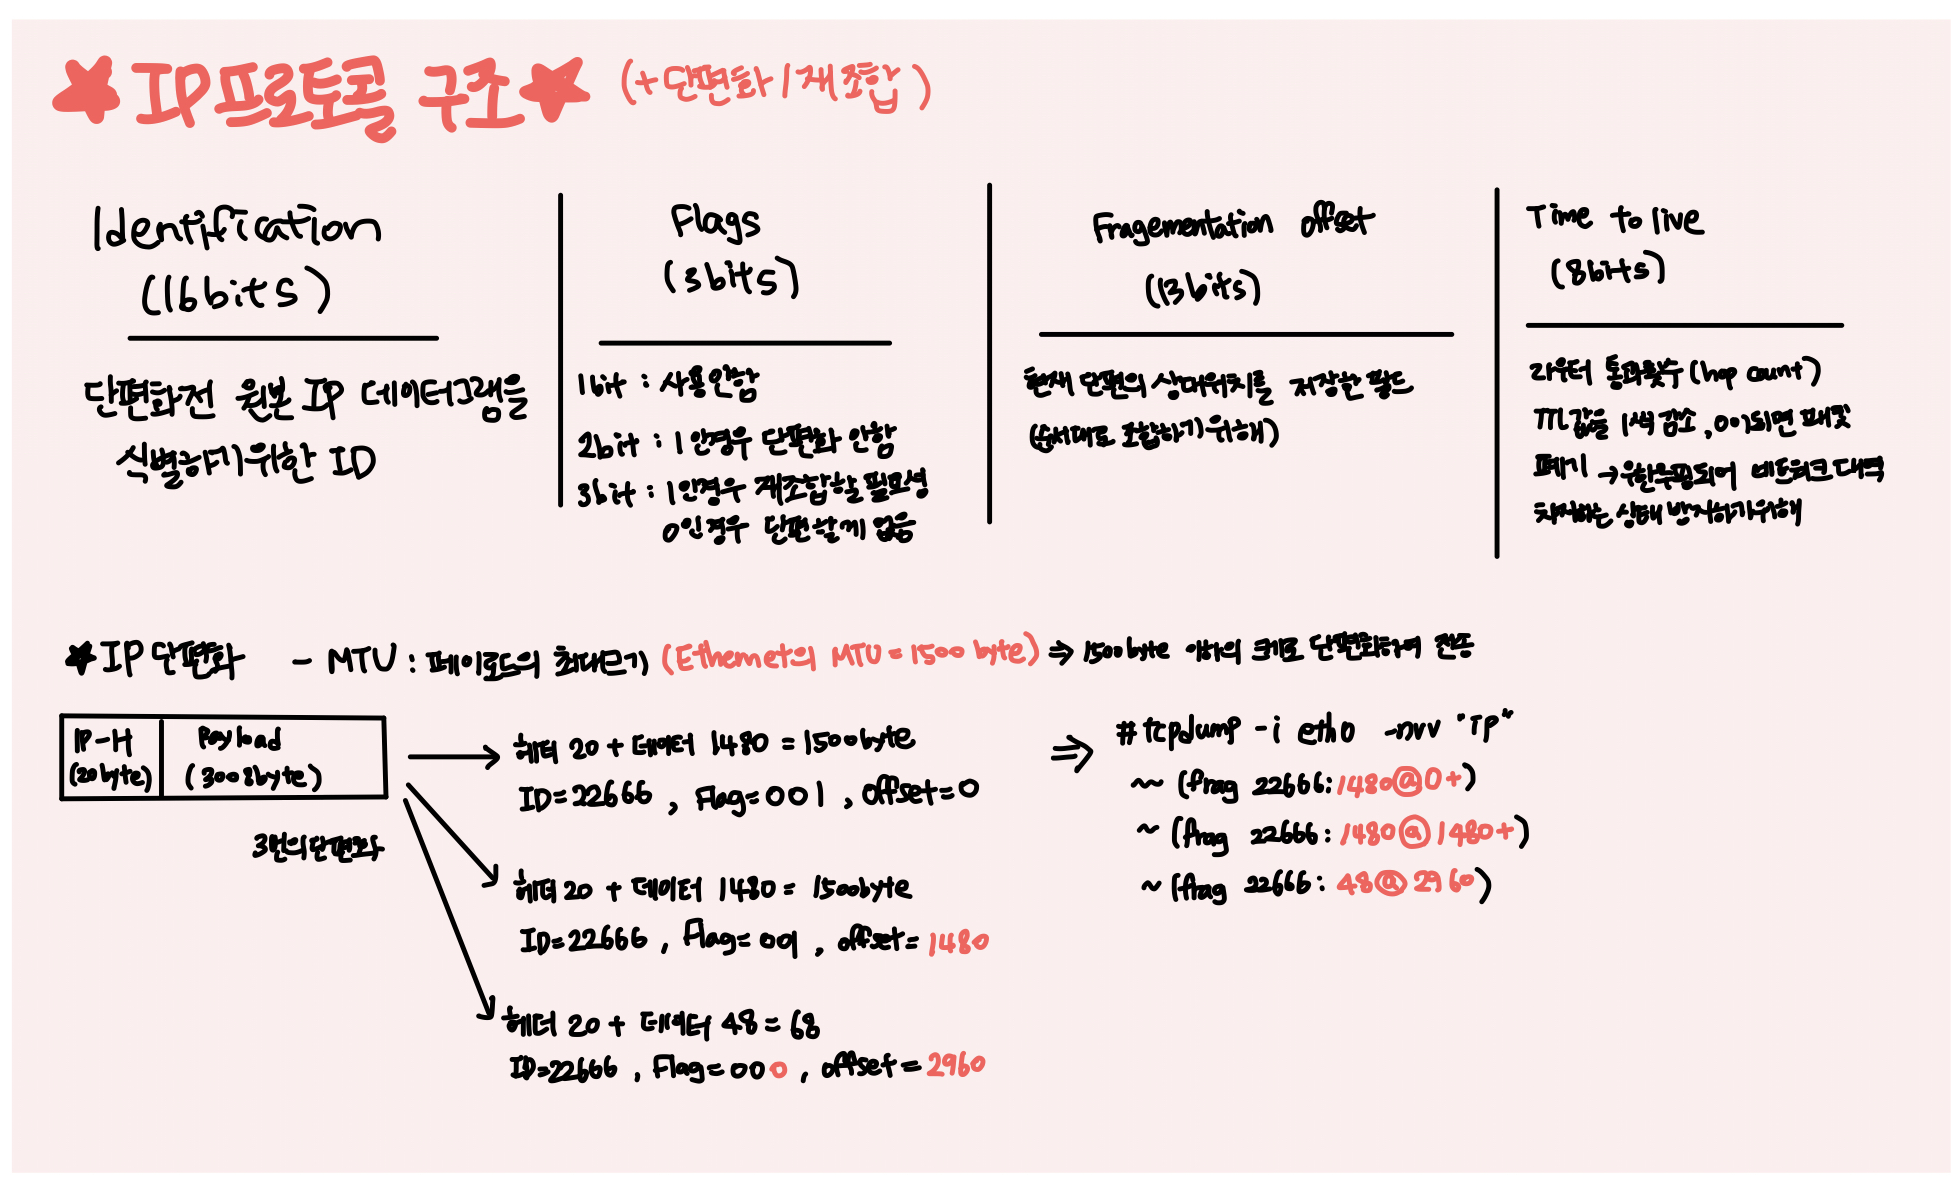 IP프로토콜 구조 (+단편화/재조합)
Identification
(16bits)
단편화전 원본 IP 데이터그램을
식별하기위한 ID
Flags
(3bits)
1bit : 사용안함
2bit : 1인경우 단편화 안함
3bit : 1인경우 재조합할 필요성
0인경우 단편할게 없음
Fragementation offset
(13bits)
현재 단편의 상대위치를 저장할 필드
(순서대로 조합하기위해)
Time to live
(8bits)
라우터 통과횟수(hop count)
TTL값을 1씩 감소, 0이되면 패킷
폐기 → 무한루핑되어 네트워크 대역
차지하는 상태 방지하기위해
IP 단편화 - MTU : 페이로드의 최대크기 (Ethernet의 MTU = 1500 byte) ⇒ 1500byte 이하의 크기로 단편화하여 전송
IP-H
(20byte)
Payload
(3008byte)
3번의단편화
헤더 20 + 데이터 1480 = 1500byte
ID=22666 , Flag=001 , offset=0
헤더 20 + 데이터 1480 = 1500byte
ID=22666 , Flag=001 , offset=1480
헤더 20 + 데이터 48 = 68
ID=22666 , Flag=000 , offset=2960
⇒ #tcpdump -i eth0 -nvv "IP"
~ (frag 22666:1480@0+)
~ (frag 22666:1480@1480+)
~ (frag 22666:48@2960)